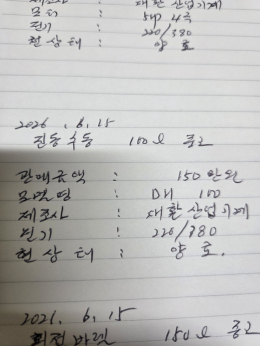 제조사 : 대환 산업기계
모터 : 5HP 4극
전기 : 220/380
현상태 : 양호
2026. 6. 15
진동수동 100ℓ 중고
판매금액 : 150만원
모델명 : DH 100
제조사 : 대환산업기계
전기 : 220/380
현상태 : 양호.
2021. 6. 15
회전바렐 150ℓ 중고